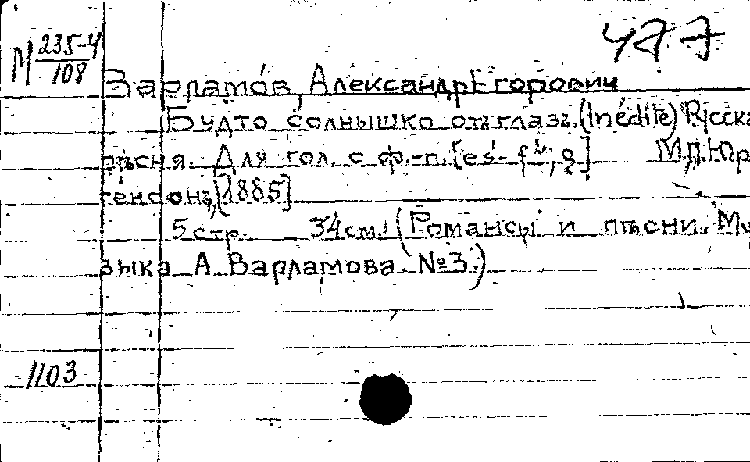 477
М 235-4
108
Варламов, Александр Егорович
Будто солнышко отъ глазъ. (Inédite) Русска
пѣсня. Для гол. с ф.-п. [es¹-f², g.] М., П. Юр
генсонъ, [1885]
5 стр. 34 см. (Романсы и пѣсни. Му
зыка А. Варламова. №3.)
1103